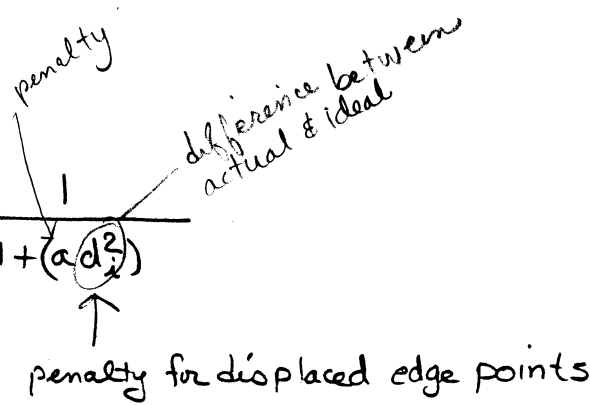 penalty
difference between
actual & ideal
1
1+(ad²ᵢ)
penalty for displaced edge points